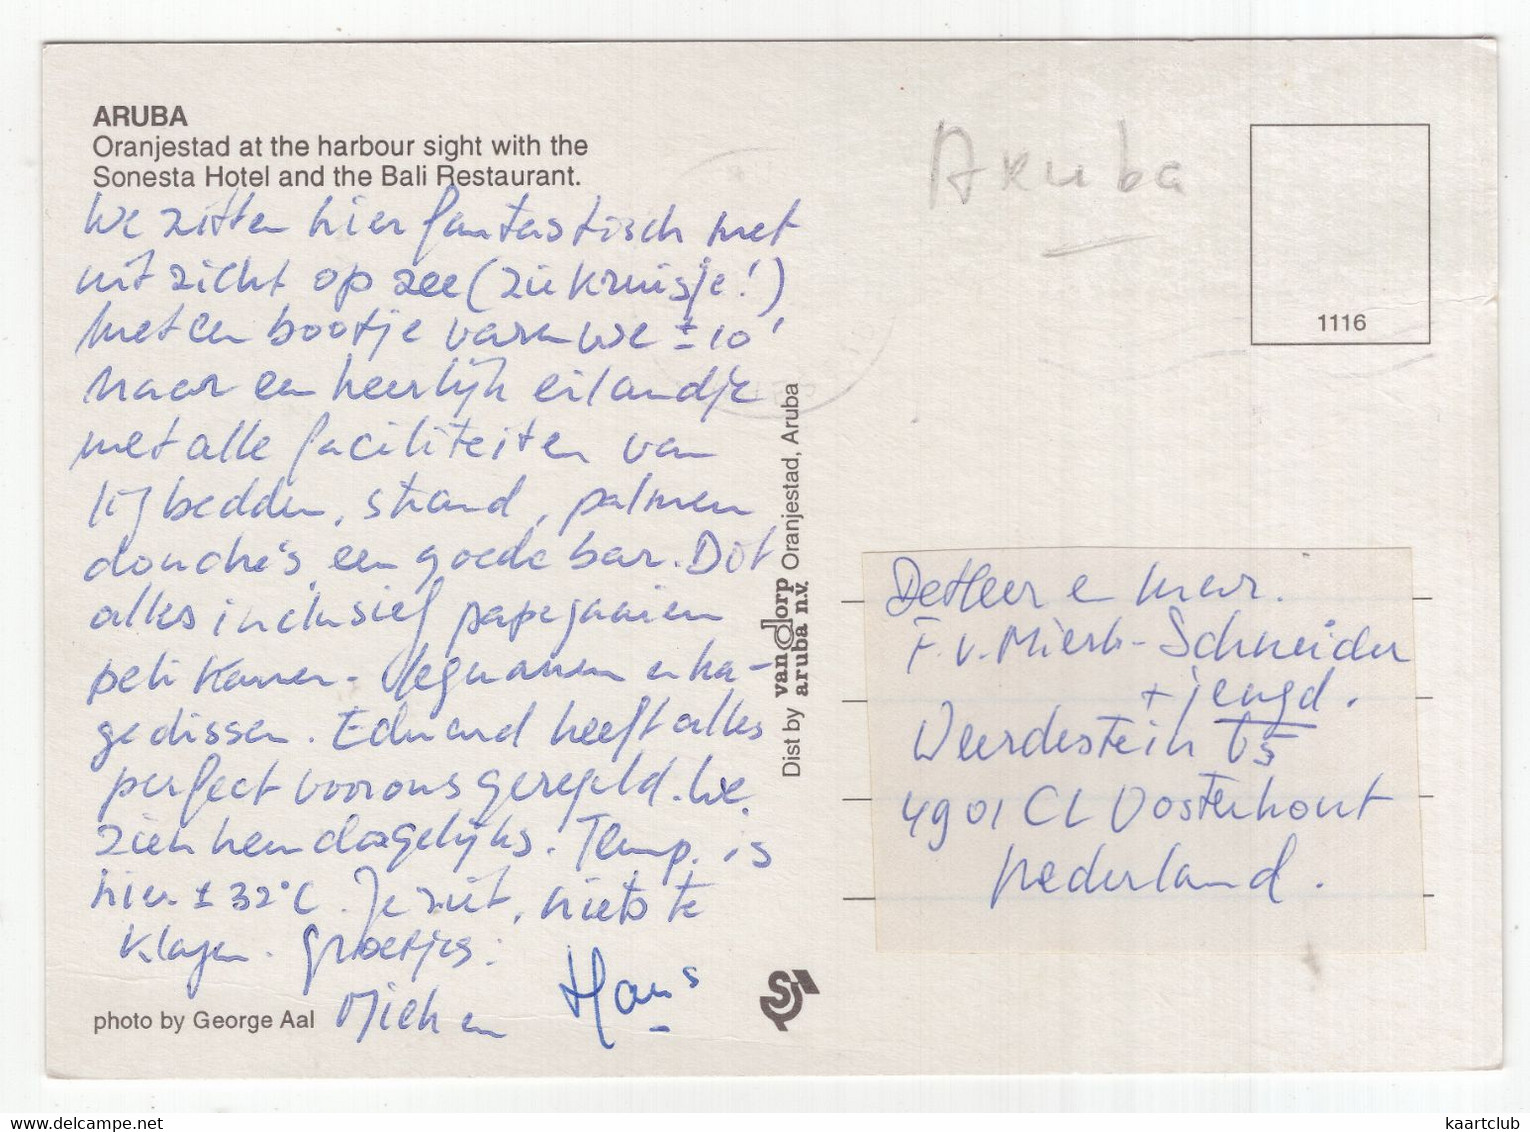 ARUBA
Oranjestad at the harbour sight with the
Sonesta Hotel and the Bali Restaurant.
We zitten hier fantastisch met
uitzicht op zee (zie kruisje!)
Met een bootje varen we ± 10'
naar een heerlijk eilandje
met alle faciliteiten van
ligbedden, strand, palmen
douche's, een goede bar. Dat
alles inclusief papegaaien
pelikanen - leguanen en ha-
gedissen. Eduard heeft alles
perfect voor ons geregeld. We
zien hen dagelijks. Temp. is
hier ± 32°C. Je ziet, niets te
klagen. Groetjes:
en Hans
photo by George Aal
Aruba
1116
Dist by van dorp aruba n.v. Oranjestad, Aruba
De Heer en Mevr.
F. v. Mierlo-Schneider
+ jeugd.
Weerdestein
4901 CL Oosterhout
Nederland.
delcampe.net
kaartclub